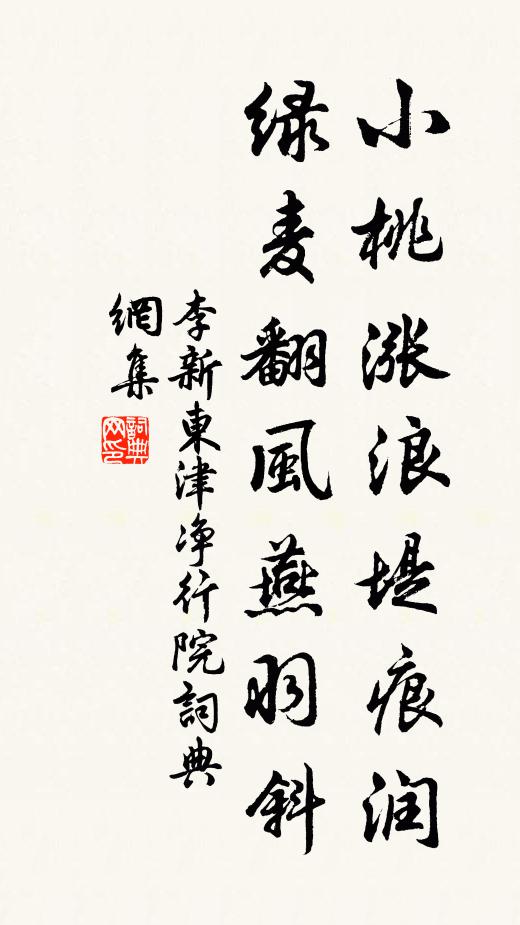 小桃漲浪堤痕润
緑麦翻風燕羽斜
李新東津净行院詞典
網集
詞典网印